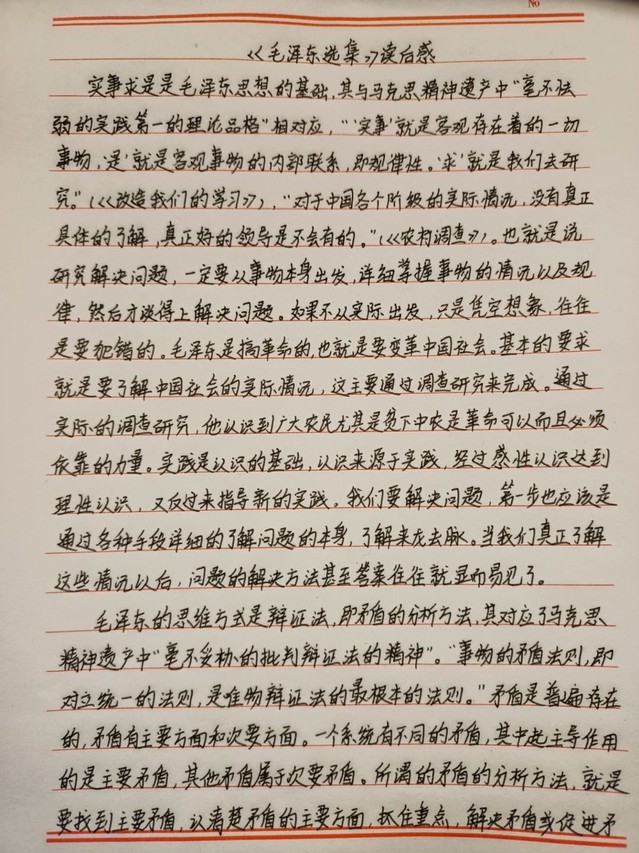 No
《毛泽东选集》读后感
实事求是是毛泽东思想的基础,其与马克思精神遗产中“毫不怯
弱的实践第一的理论品格”相对应,“‘实事’就是客观存在着的一切
事物,‘是’就是客观事物的内部联系,即规律性。‘求’就是我们去研
究。”(《改造我们的学习》),“对于中国各个阶级的实际情况,没有真正
具体的了解,真正好的领导是不会有的。”(《农村调查》)。也就是说
研究解决问题,一定要从事物本身出发,详细掌握事物的情况以及规
律,然后才谈得上解决问题。如果不从实际出发,只是凭空想象,往往
是要犯错的。毛泽东是搞革命的,也就是要变革中国社会。基本的要求
就是要了解中国社会的实际情况,这主要通过调查研究来完成。通过
实际的调查研究,他认识到广大农民尤其是贫下中农是革命可以而且必须
依靠的力量。实践是认识的基础,认识来源于实践,经过感性认识达到
理性认识,又反过来指导新的实践。我们要解决问题,第一步也应该是
通过各种手段详细的了解问题的本身,了解来龙去脉。当我们真正了解
这些情况以后,问题的解决方法甚至答案往往就显而易见了。
毛泽东的思维方式是辩证法,即矛盾的分析方法,其对应了马克思
精神遗产中“毫不妥协的批判辩证法的精神”。“事物的矛盾法则,即
对立统一的法则,是唯物辩证法的最根本的法则。”矛盾是普遍存在
的,矛盾有主要方面和次要方面。一个系统有不同的矛盾,其中起主导作用
的是主要矛盾,其他矛盾属于次要矛盾。所谓的矛盾的分析方法,就是
要找到主要矛盾,认清楚矛盾的主要方面,抓住重点,解决矛盾或促进矛